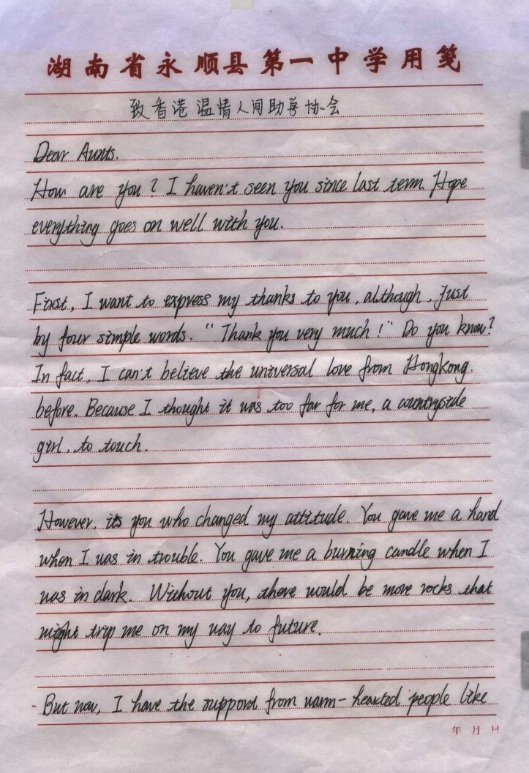 湖南省永顺县第一中学用笺
致香港温情人间助学协会
Dear Aunts.
How are you? I haven't seen you since last term. Hope
everything goes on well with you.
First, I want to express my thanks to you, although, just
by four simple words. "Thank you very much!" Do you know?
In fact, I can't believe the universal love from Hongkong.
before. Because I thought it was too far for me, a countryside
girl, to touch.
However, its you who changed my attitude. You gave me a hand
when I was in trouble. You gave me a burning candle when I
was in dark. Without you, there would be more rocks that
might trip me on my way to future.
- But now, I have the support from warm-hearted people like
年 月 日